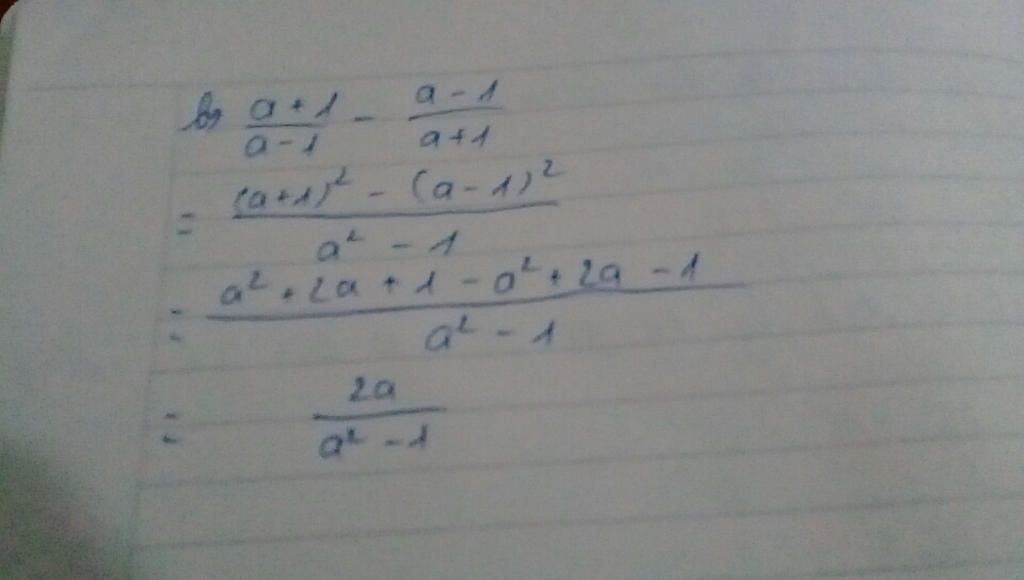 b) \frac{a+1}{a-1} - \frac{a-1}{a+1}
= \frac{(a+1)^2 - (a-1)^2}{a^2 - 1}
= \frac{a^2 + 2a + 1 - a^2 + 2a - 1}{a^2 - 1}
= \frac{2a}{a^2 - 1}